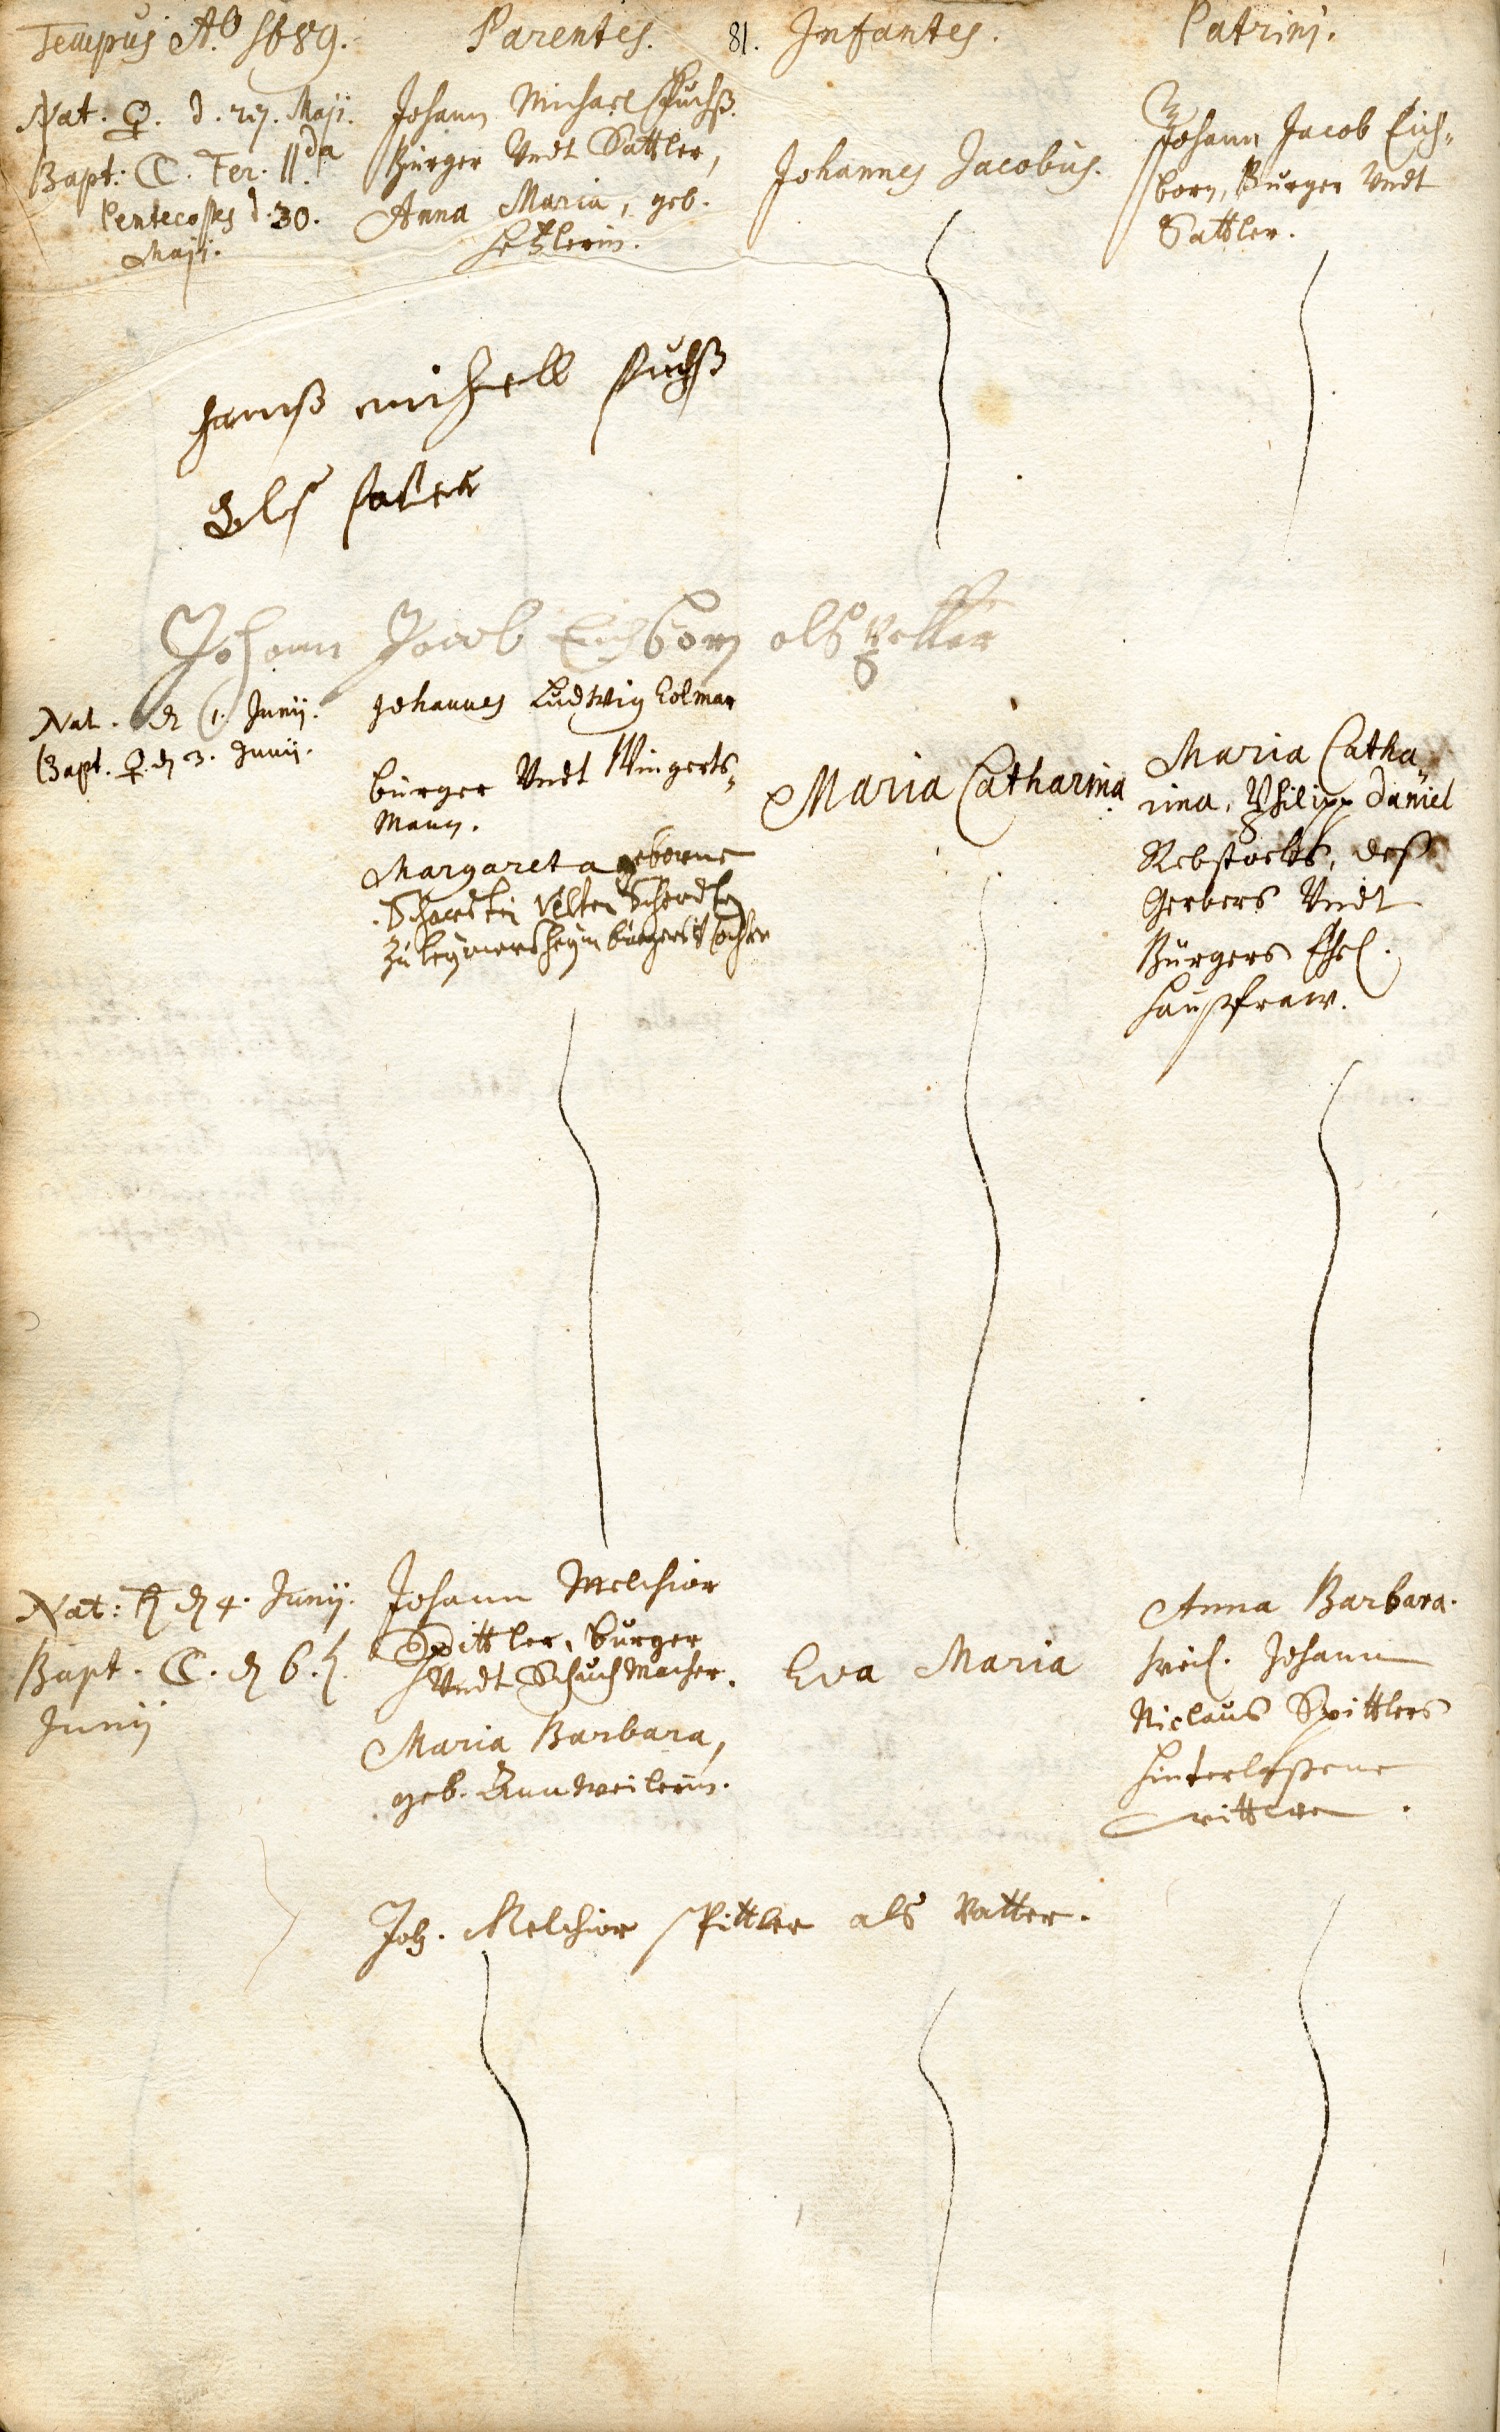 Tempus Aº. 1689.
Parentes.
81.
Infantes.
Patrini.
Nat. ♀. d. 27. Maji.
Bapt: ☾. Fer. IIda
Pentecostes d. 30.
Maji.
Johann Michael Fuchß
Bürger Undt Sattler,
Anna Maria, geb.
Johannes Jacobus.
Johann Jacob Eich-
born, Burger Undt
Sattler.
Hanß michell fuchß
Als fatter
Johann Jacob Eichborn alß petter
Nat. d. 1. Junij.
Bapt. ♀. d. 3. Junij.
Johannes Ludwig Colmar
burger Undt Wingerts-
Mann.
Margareta geborne
Velten
zu leymersheym burgers tochter
Maria Catharina
Maria Catha-
rina, Philipp Daniel
Rebstocks, deß
Gerbers Undt
Bürgers Ehel.
Haußfraw.
Nat: ♄ d. 4. Junij.
Bapt. ☾. d. 6.
Junij
Johann Melchior
Spittler, burger
Undt Schuchmacher.
Maria Barbara,
geb. Annweilerin.
Eva Maria
Anna Barbara.
weil. Johann
Niclaus Spittlers
hinterlaßene
wittwe.
Joh. Melchior Spittler als Vatter.